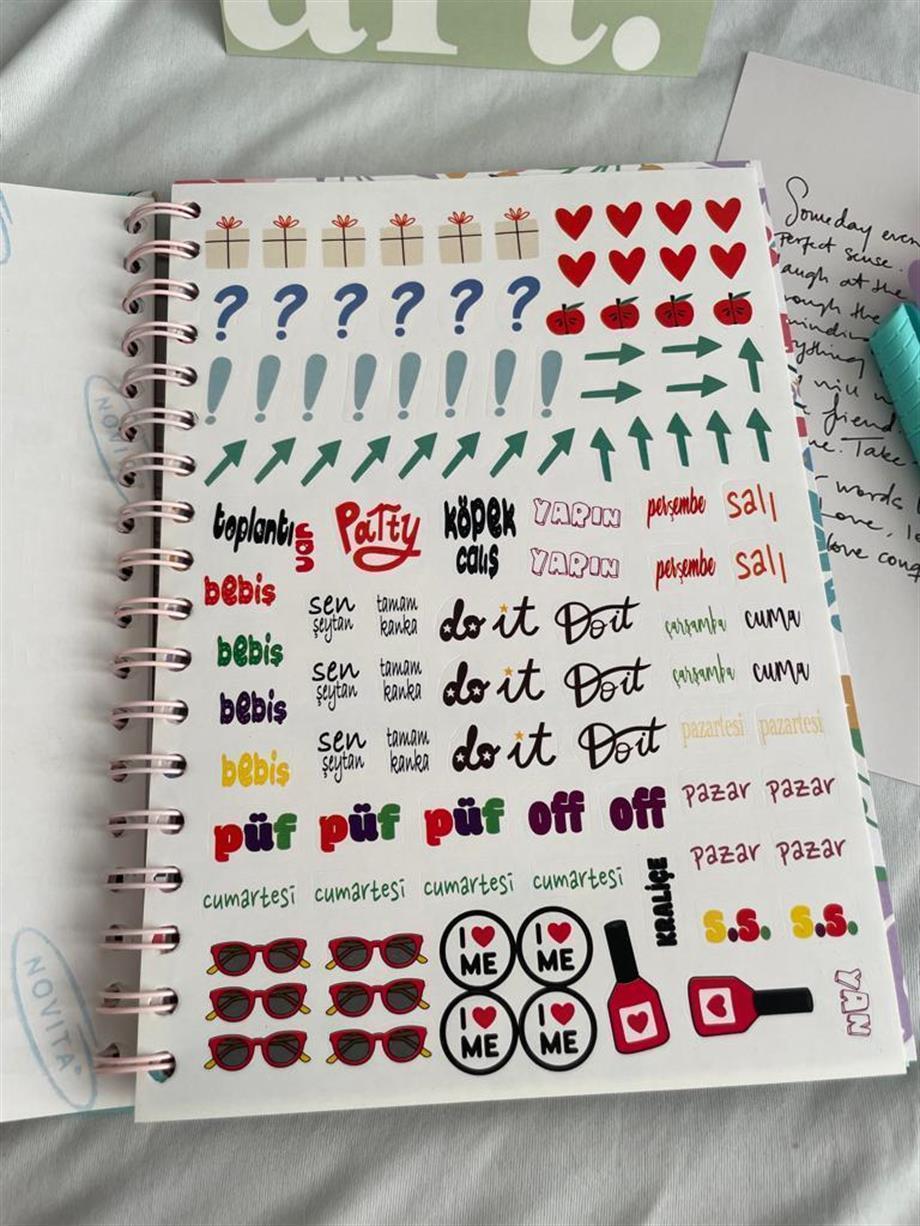 art.
Someday
Perfect sense.
at the
the
friend.
Take
words
love
NOVITA
? ? ? ? ? ?
! ! ! ! ! ! ! !
toplantı var
Party
köpek
calış
YARIN
perşembe
salı
YARIN
perşembe
salı
bebiş
sen
şeytan
tamam
kanka
do it
Do it
çarşamba
cuma
bebiş
sen
şeytan
tamam
kanka
do it
Do it
çarşamba
cuma
bebiş
sen
şeytan
tamam
kanka
do it
Do it
pazartesi
pazartesi
bebiş
püf
püf
püf
off
off
pazar
pazar
pazar
pazar
cumartesi
cumartesi
cumartesi
cumartesi
KRALİÇE
s.s.
s.s.
I ♥
ME
I ♥
ME
I ♥
ME
I ♥
ME
YAN
NOVITA